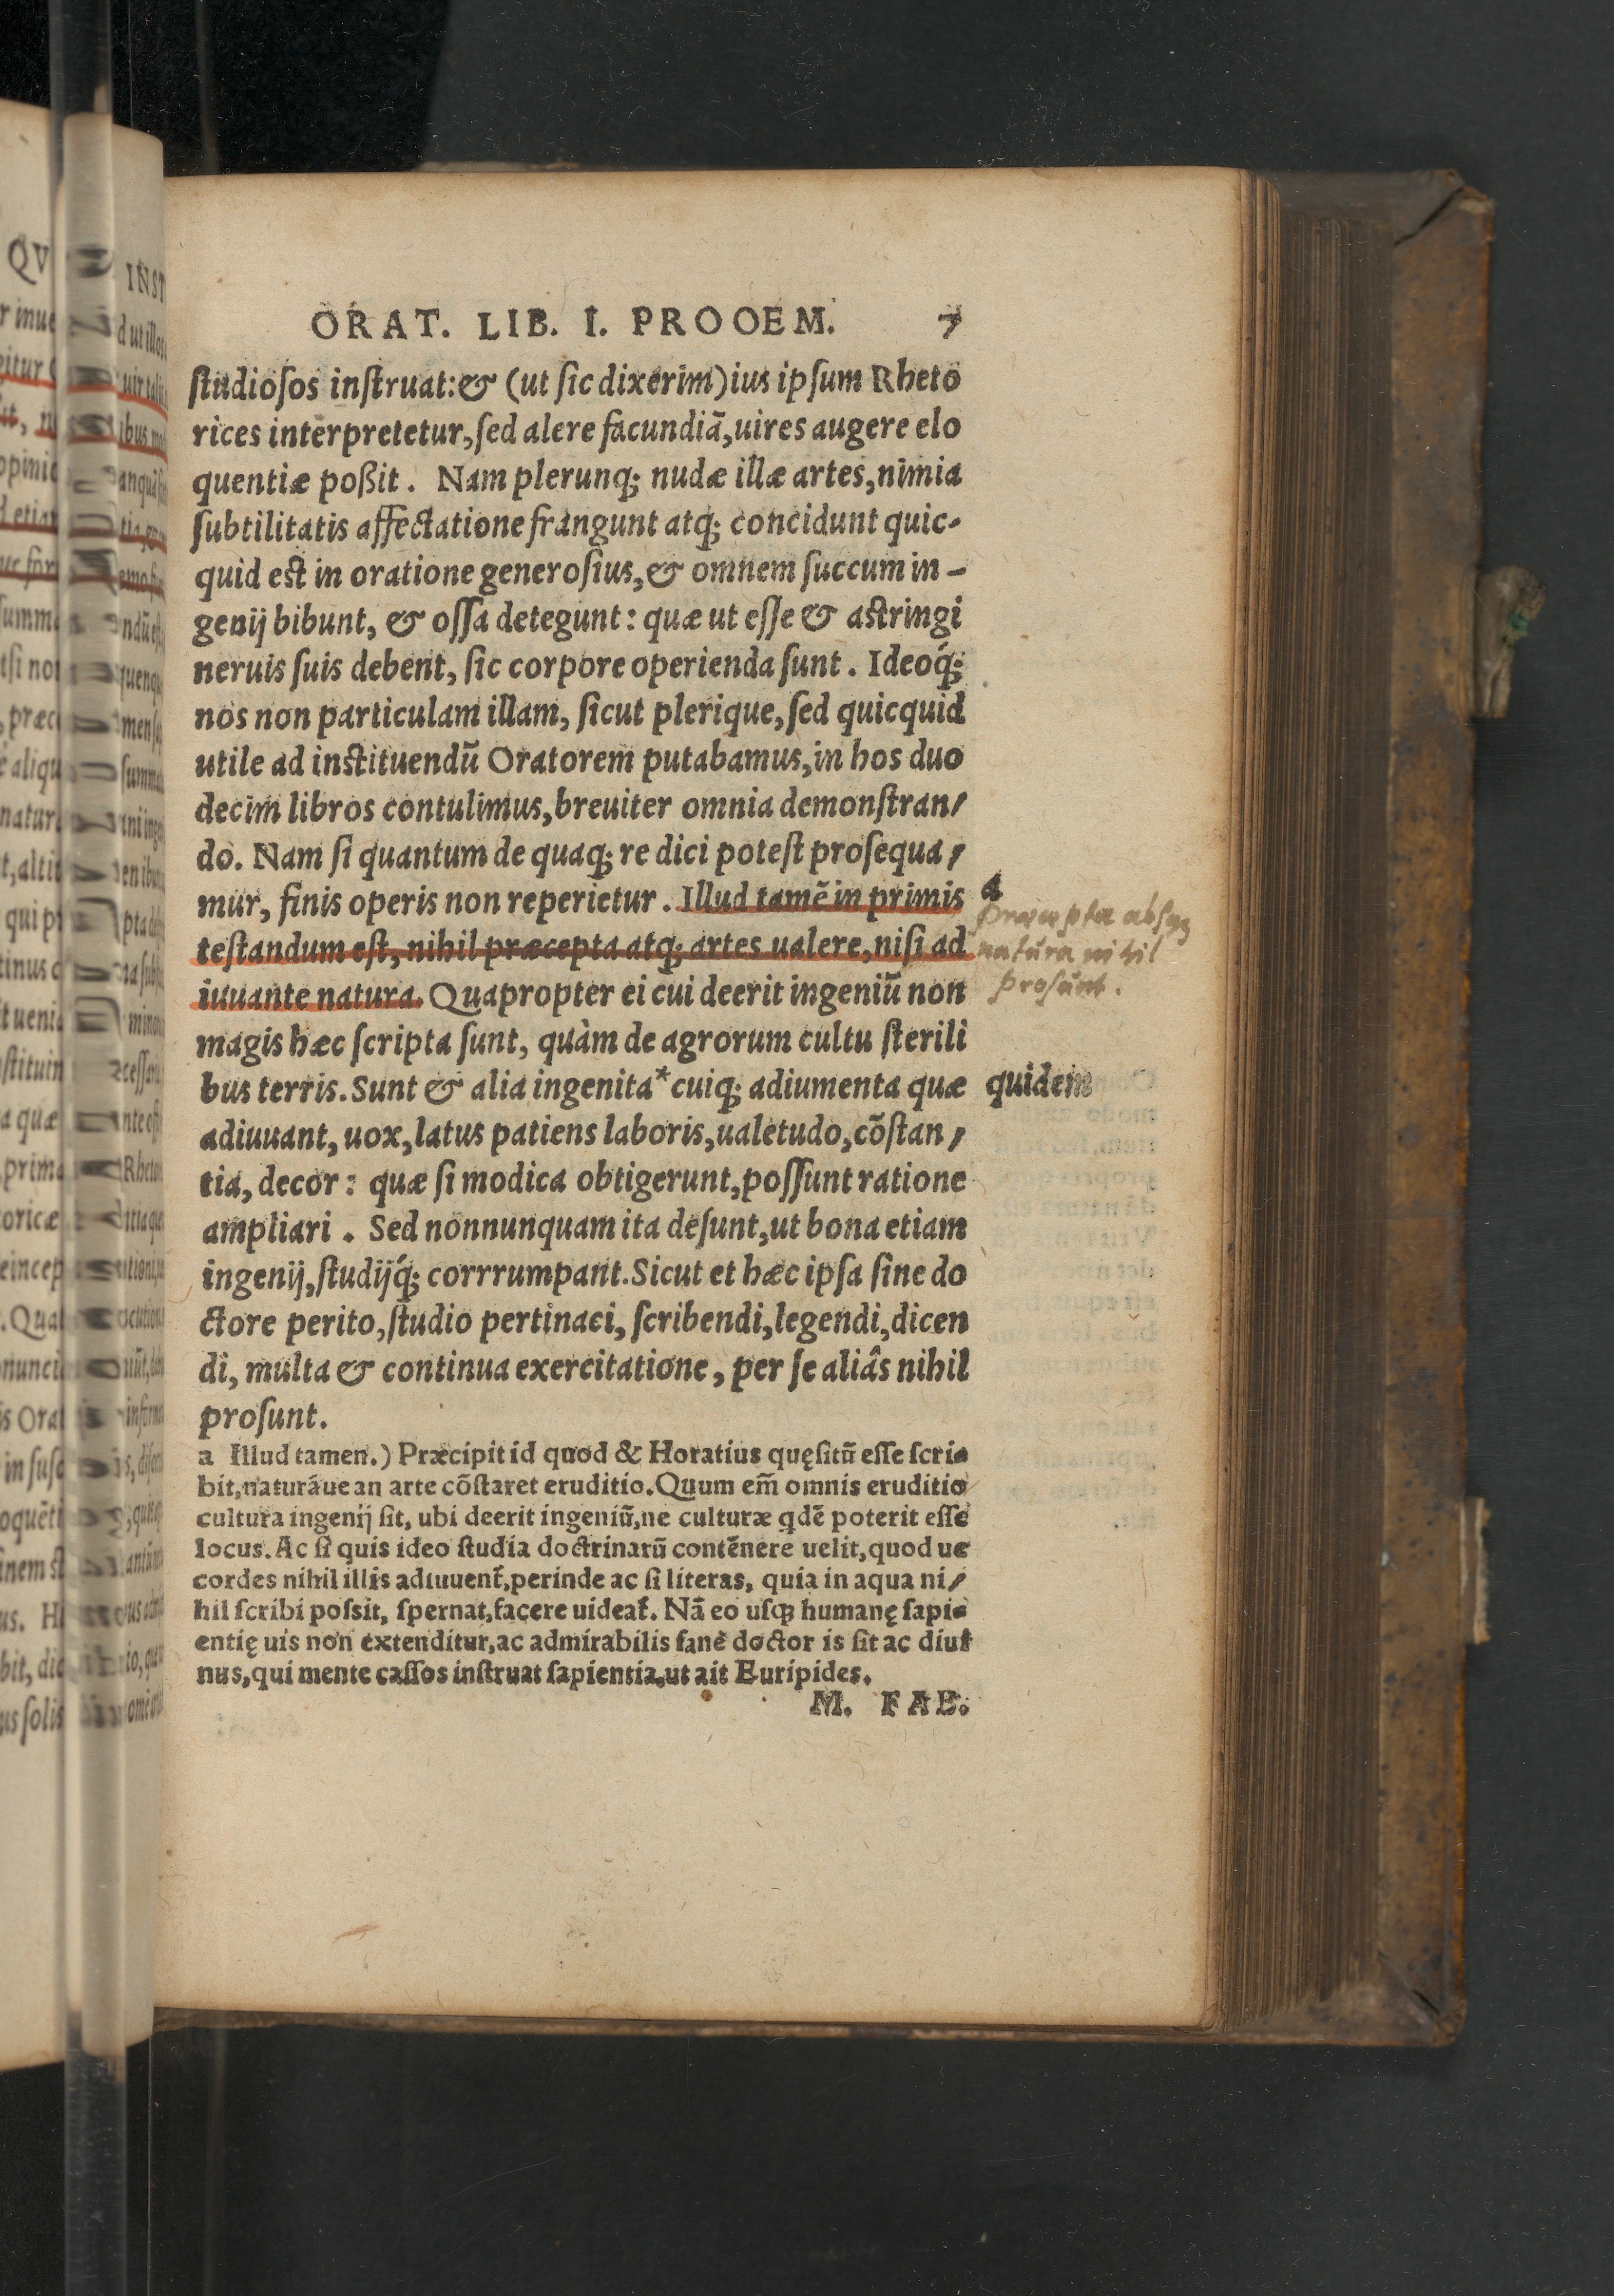 ORAT. LIB. I. PROOEM. 7
ſtudioſos inſtruat:& (ut ſic dixerim)ius ipſum Rheto
rices interpretetur,ſed alere facundiã,uires augere elo
quentiæ poßit. Nam plerunq; nudæ illæ artes,nimia
ſubtilitatis affectatione frangunt atq; concidunt quic-
quid est in oratione generoſius,& omnem ſuccum in-
genij bibunt, & oſſa detegunt: quæ ut eſſe & astringi
neruis ſuis debent, ſic corpore operienda ſunt. Ideoq́;
nos non particulam illam, ſicut plerique,ſed quicquid
utile ad instituendũ Oratorem putabamus,in hos duo
decim libros contulimus,breuiter omnia demonſtran/
do. Nam ſi quantum de quaq; re dici poteſt proſequa/
mur, finis operis non reperietur. Illud tamẽ in primis a
teſtandum eſt, nihil præcepta atq; artes ualere,niſi ad
iuuante natura. Quapropter ei cui deerit ingeniũ non
præcepta absq;
natura nihil
prosunt.
magis hæc ſcripta ſunt, quàm de agrorum cultu ſterili
bus terris. Sunt & alia ingenita* cuiq; adiumenta quæ quidem
adiuuant, uox,latus patiens laboris,ualetudo,cõſtan/
tia, decor: quæ ſi modica obtigerunt,poſſunt ratione
ampliari. Sed nonnunquam ita deſunt,ut bona etiam
ingenij,ſtudijq́; corrrumpant. Sicut et hæc ipſa ſine do
ctore perito,ſtudio pertinaci, ſcribendi,legendi,dicen
di, multa & continua exercitatione, per ſe aliâs nihil
proſunt.
a Illud tamen.) Præcipit id quod & Horatius quęſitũ eſſe ſcri-
bit,naturáue an arte cõſtaret eruditio.Quum em̃ omnis eruditio
cultura ingenij ſit, ubi deerit ingeniũ,ne culturæ qdẽ poterit eſſe
locus. Ac ſi quis ideo ſtudia doctrinarũ contẽnere uelit,quod ue
cordes nihil illis adiuuent̃,perinde ac ſi literas, quia in aqua ni/
hil ſcribi poſsit, ſpernat,facere uideat̃. Nã eo uſq; humanę ſapi-
entię uis non extenditur,ac admirabilis ſanè doctor is ſit ac diui
nus,qui mente caſſos inſtruat ſapientia,ut ait Euripides.
M. FAB.